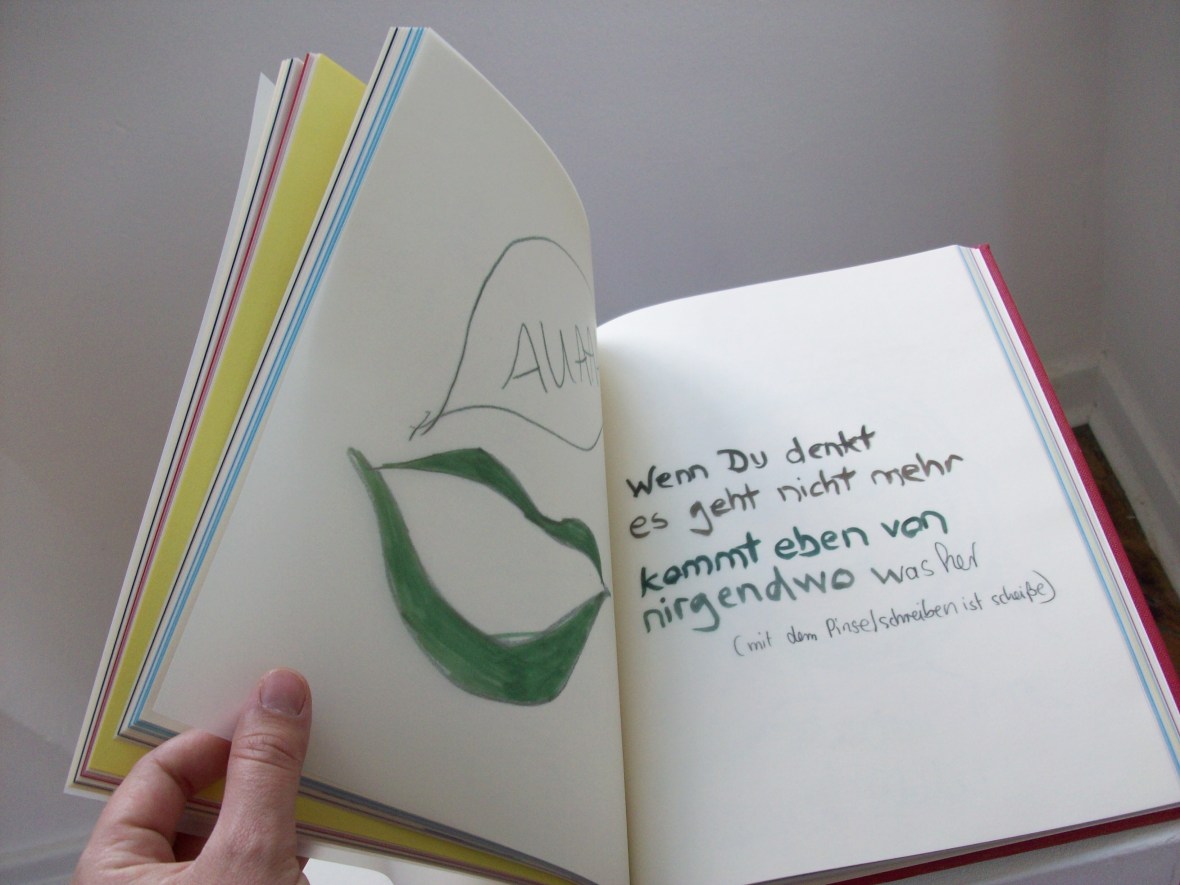 AUA
Wenn Du denkt
es geht nicht mehr
kommt eben von
nirgendwo was her
(mit dem Pinselschreiben ist scheiße)